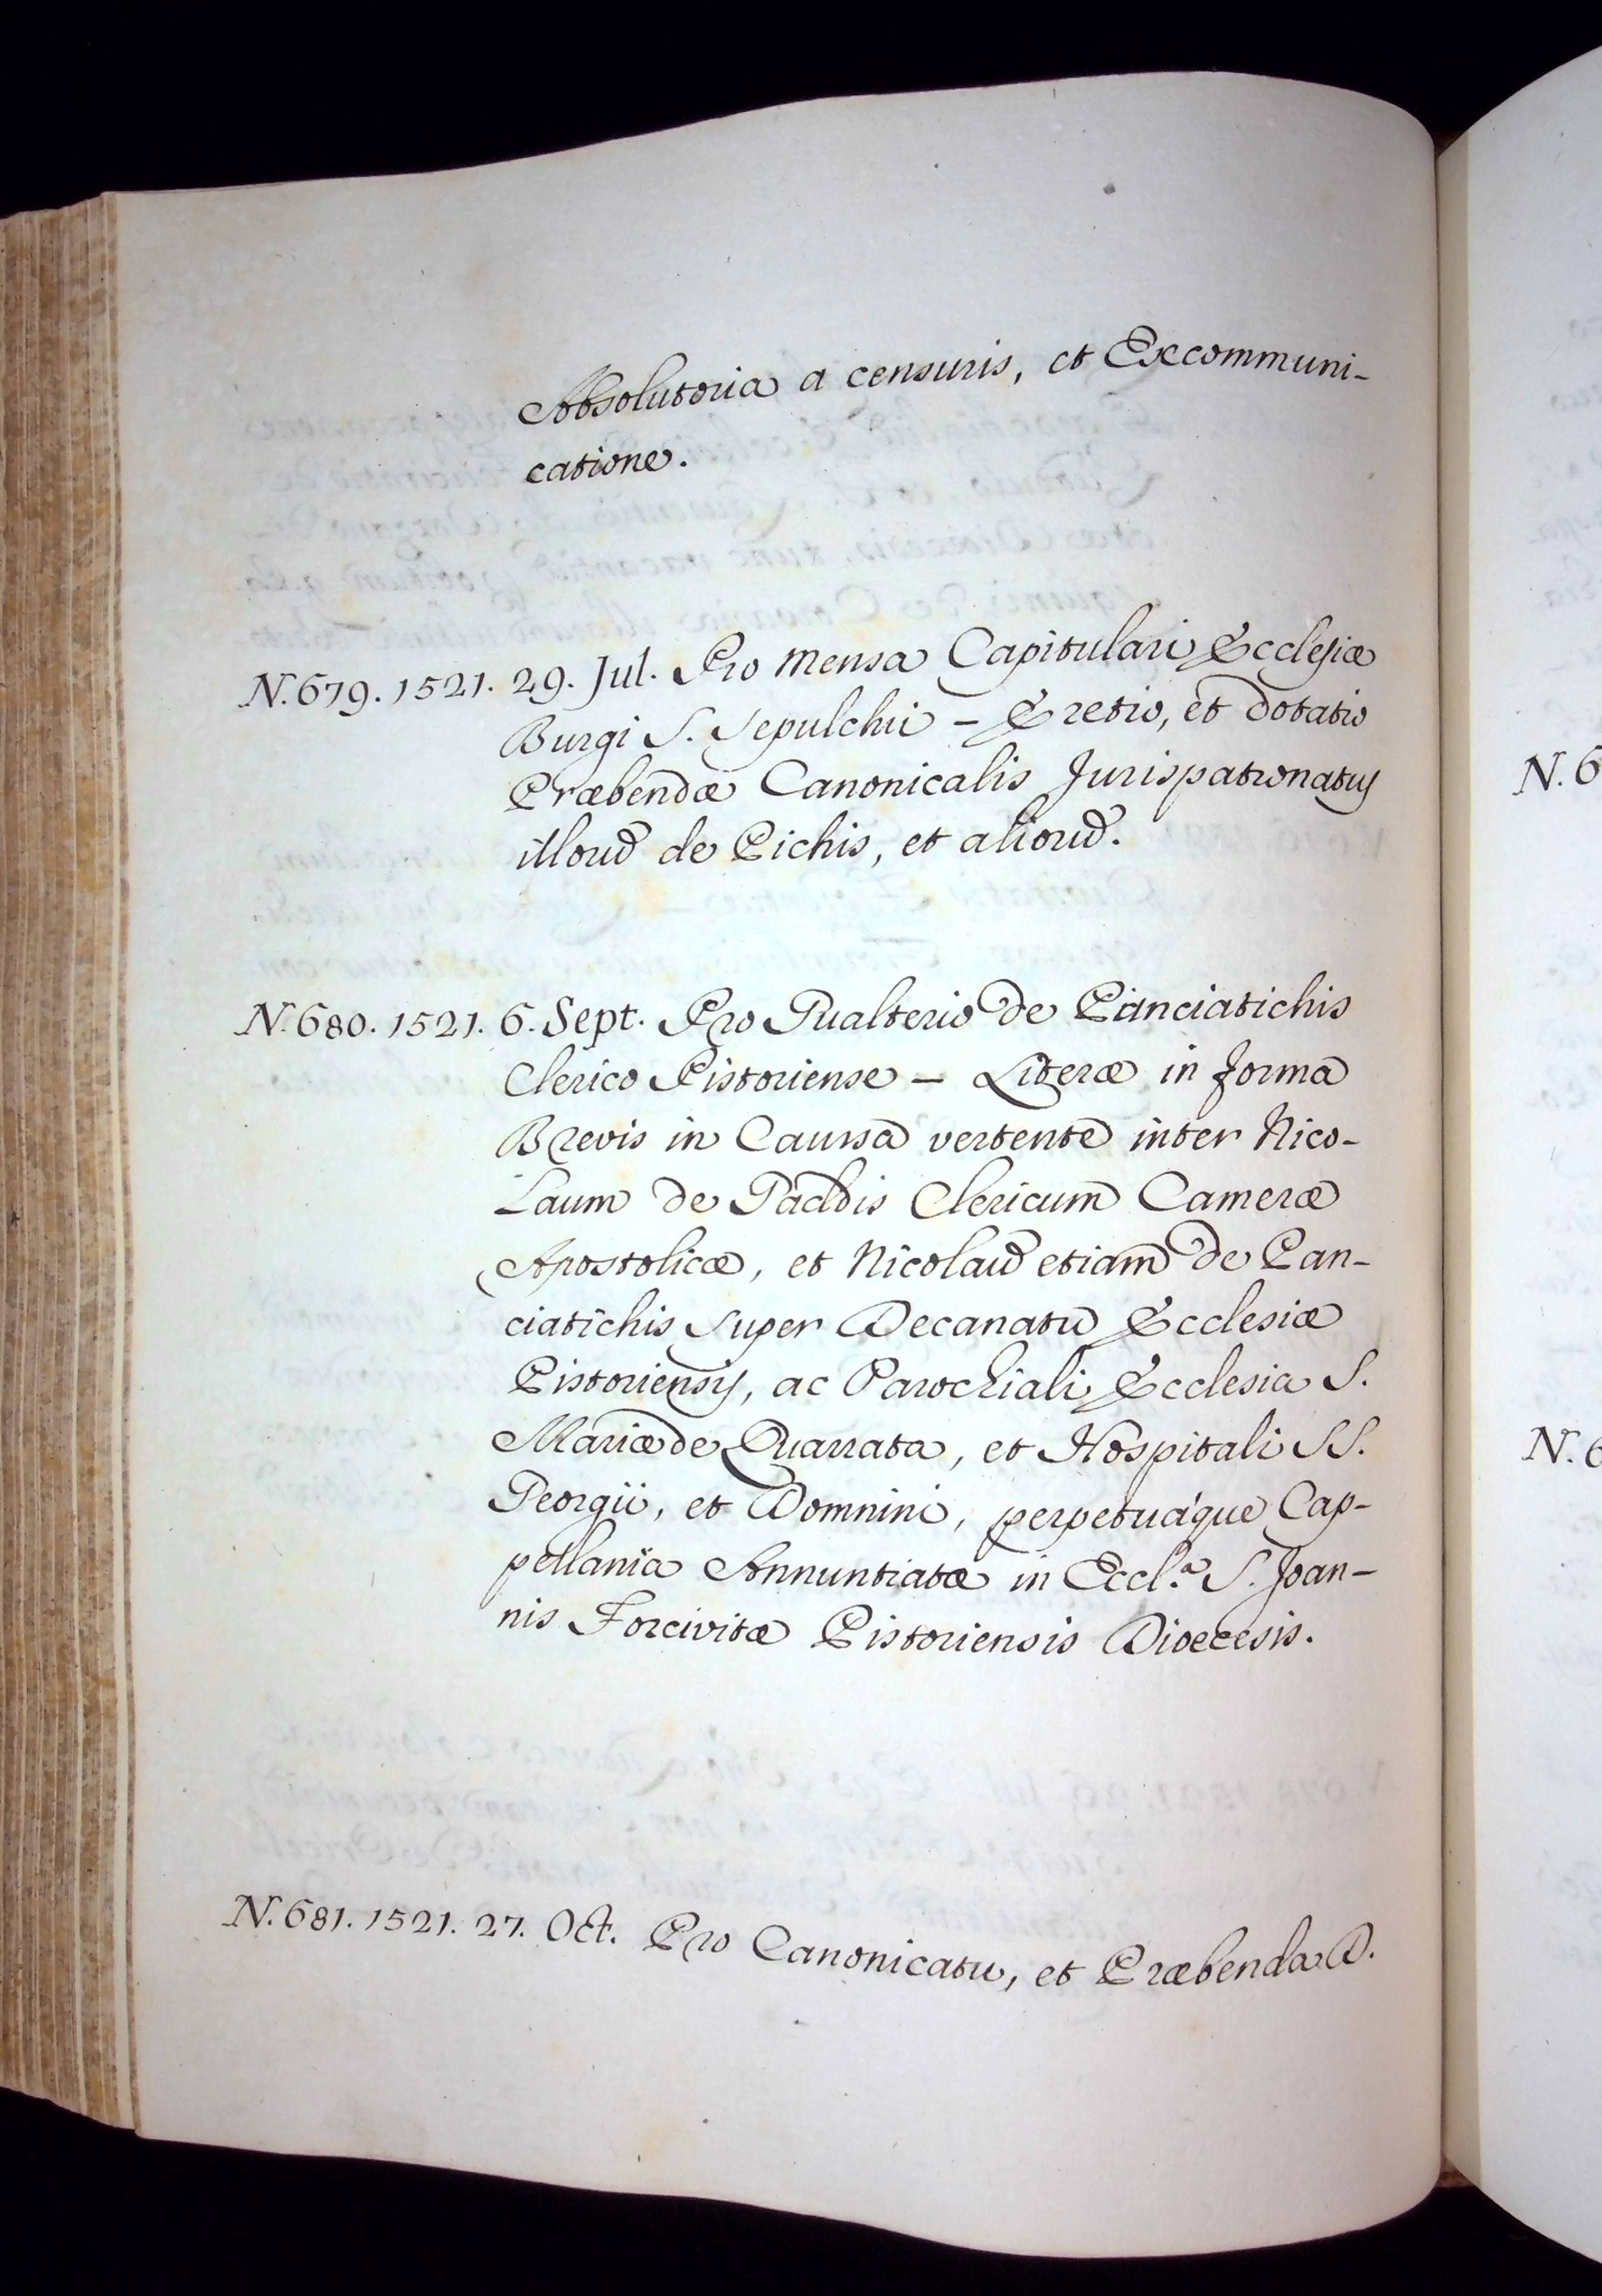 Absolutoria a censuris, et Excommuni-
catione.
N. 679. 1521. 29. Jul. Pro Mensa Capitulari Ecclesiæ
Burgi S. Sepulchri – Eretio, et dotatio
Præbendæ Canonicalis Jurispatronatus
illorũ de Pichis, et aliorũ.
N. 680. 1521. 6. Sept. Pro Gualterio de Panciatichis
Clerico Pistoriense – Literæ in forma
Brevis in Caussa vertente inter Nico-
laum de Gaddis Clericum Cameræ
Apostolicæ, et Nicolaũ etiam de Pan-
ciatichis super Decanatu Ecclesiæ
Pistoriensis, ac Parochiali Ecclesia S.
Mariæ de Quarrata, et Hospitali SS.
Georgii, et Domnini, perpetuáque Cap-
pellania Annuntiatæ in Eccl.ª S. Joan-
nis Forcivitæ Pistoriensis Dioecesis.
N. 681. 1521. 27. Oct. Pro Canonicatu, et Præbenda D.
N. 6
N. 6